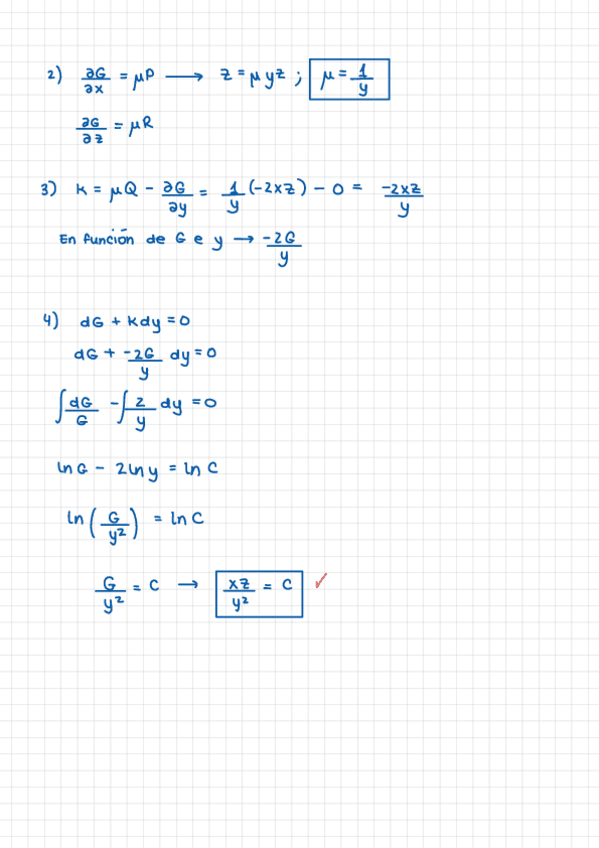 2) ∂G/∂x = μP ⟶ z = μyz ; μ = 1/y
∂G/∂z = μR
3) K = μQ - ∂G/∂y = 1/y (-2xz) - 0 = -2xz/y
En función de G e y → -2G/y
4) dG + Kdy = 0
dG + -2G/y dy = 0
∫ dG/G - ∫ 2/y dy = 0
ln G - 2 ln y = ln C
ln (G/y²) = ln C
G/y² = C → xz/y² = C ✓